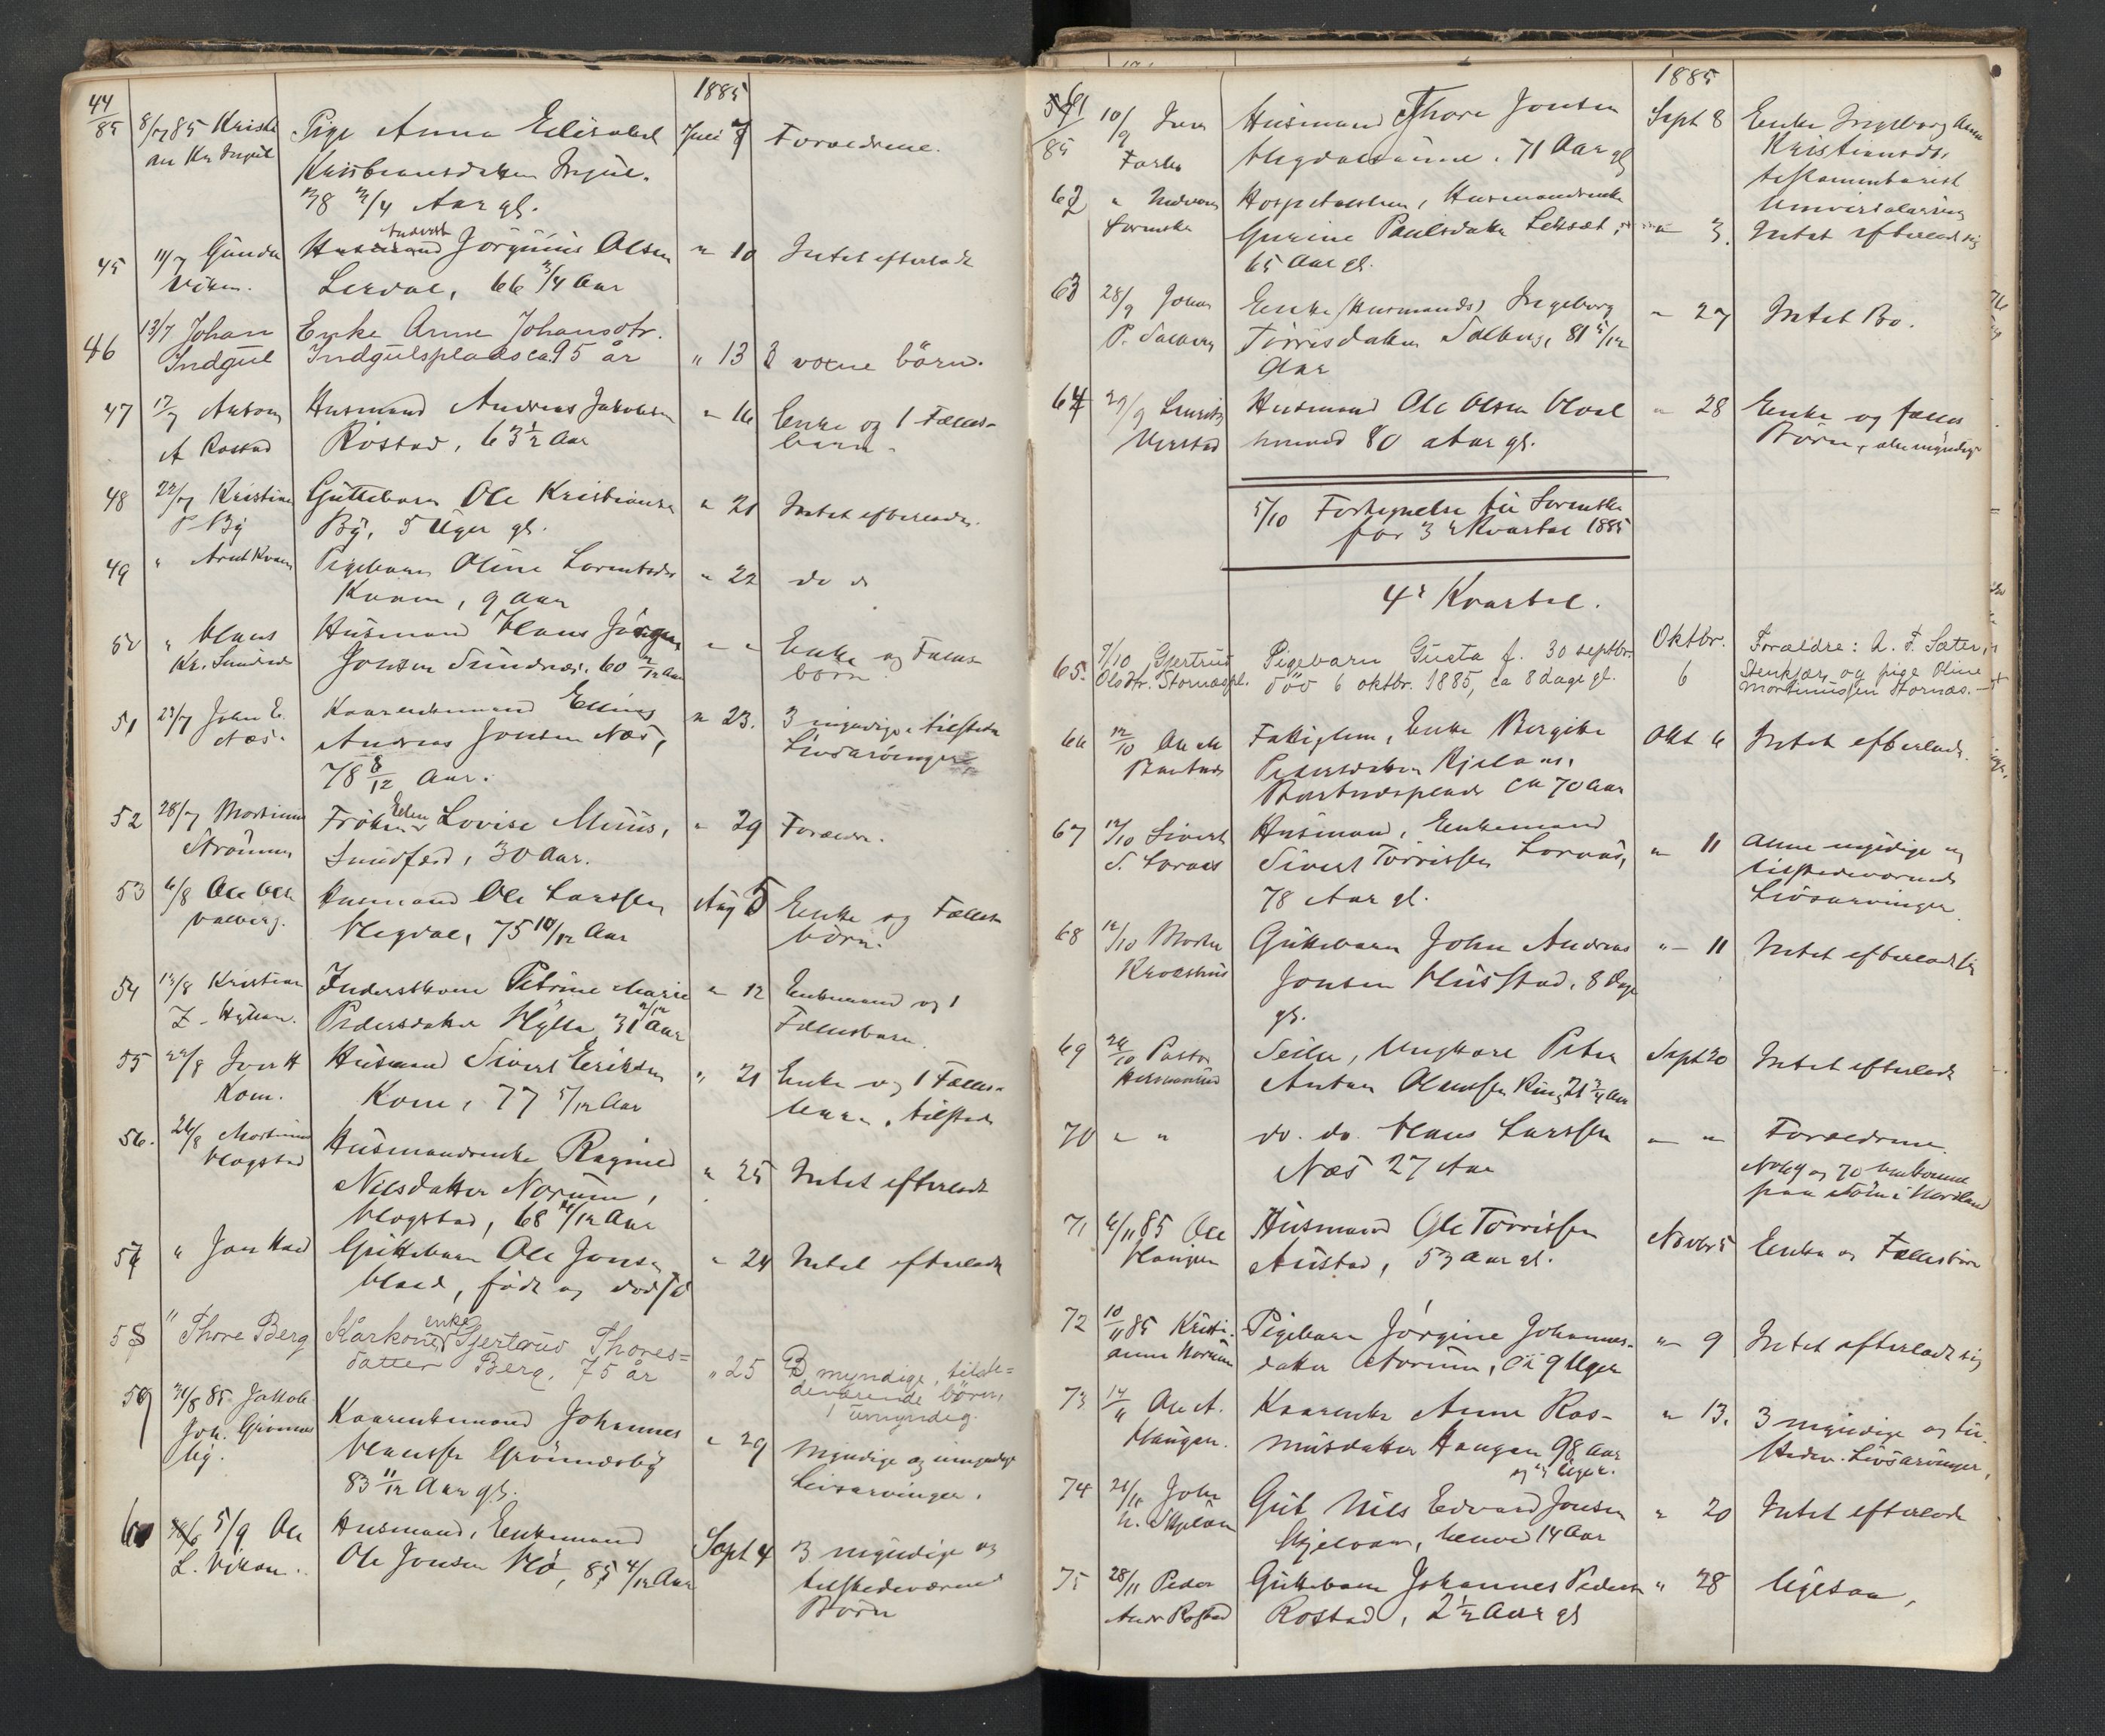 1885
44/85 8/7 85 Kristi Pige Anna Elisabet Juli 7 Forældrene.
an Kr. Indgul Kristiansdatter Indgul.
38 3/4 Aar gl.
Inderst
45 11/7 Gunder Husmand Jørginus Olsen " 10 Intet efterladt
Viken. Lerdal, 66 3/4 Aar
46 13/7 Johan Enke Anne Johansdtr.
Indgul Indgulsplads ca 95 år " 13 3 voxne börn.
47 17/7 Anton Husmand Andreas Jakobsen " 16 Enke og 1 Fælles-
A Rostad Rostad, 63 1/2 Aar barn.
48 22/7 Kristian Guttebarn Ole Kristiansen " 21 Intet efterladt.
P By By, 5 Uger gl.
49 " Arnt Kvam Pigebarn Oline Lorentsdtr " 22 do do
Kvam, 9 Aar
50 " Hans Husmand Hans Jørgen " " Enke og Fælles
Kr. Sundnes Jonsen Sundnes, 60 2/12 Aar börn.
51 23/7 John E. Kaarenkemand Elling " 23. 3 myndige tilstede
Næs. Andreas Jonsen Næs, Livsarvinger
78 8/12 Aar.
52 28/7 Mortinus Frøken Ellen Lovise Müus, " 29 Forældre.
Strømmen Sundfær, 30 Aar.
53 6/8 Ole Olsen Husmand Ole Larssen Aug 5 Enke og Fælles
Valberg. Hegdal, 75 10/12 Aar börn.
54 13/8 Kristian Inderstkone Petrine Marie " 12 Enkemand og 1
Z. Hyllan. Pedersdatter Hylla 31 2/12 Aar Fællesbarn.
55 22/8 Iver H Husmand Sivert Eriksen " 21 Enke og 1 Fælles-
Kom. Kom, 77 5/12 Aar barn, tilstede
56. 26/8 Mortinus Husmandsenke Ragnild
Hogstad Nilsdatter Norum, " 25 Intet efterladt
Hogstad, 68 /12 Aar
57 " Jon Haed Guttebarn Ole Jonsen " 24 Intet efterladt
Haed, født og død
58 " Thore Berg Kårkone enke Gjertrud Thores=
datter Berg, 75 år " 25 3 myndige, tilste=
deværende börn,
1 umyndig.
59 31/8 85 Jakob Kaarenkemand Johannes
Joh. Grönnes Hanssen Grönnesby " 29 Myndige og umyndige
by. 83 11/12 Aar gl. Livsarvinger.
60 5/9 Ole Husmand, Enkemand Sept 4 3 myndige og
L. Vikan. Ole Jonsen Mo, 85 4/12 Aar tilstedeværende
Børn
1885
61/85 10/9 Iver Husmand Thore Jonsen Sept 8 Enke Ingeborg Anna
Hegdal 71 Aar gl Kristiansdr,
testamentarisk
Universalarving
62 " Hospitalslem, Husmandsenke
Gurine Paulsdatter Leksæt, " 3. Intet efterladt sig
65 Aar gl.
63 28/9 Johan Enke (Husmands) Ingeborg " 27 Intet Bo.
P. Salberg Törrisdatter Salberg, 81 5/12
Aar
64 29/9 Laurits Husmand Ole Olsen " 28 Enke og fælles
Verstad 80 Aar gl. Børn, alle myndige
5/10 Fortegnelse til Sorenskr.
for 3de Kvartal 1885
4de Kvartal.
65. 7/10 Gjertrud Pigebarn Gusta f. 30 septbr. Oktbr. Forældre: A. F. Sæter,
Olsdtr. Stornæspl. död 6 oktbr. 1885, ca 8 dage gl. 6 Stenkjær og pige Oline
Mortinusen Stornæs.
66 12/10 Ole M Fattiglem, Enke Birgitte Okt 6 Intet efterladt.
Bartnes Pedersdatter
Bartnesplads ca 70 Aar
67 12/10 Sivert Husmand, Enkemand
S. Lornes Sivert Törrissen Lornes, " 11 Alene myndige og
78 Aar gl. tilstedeværende
Livsarvinger.
68 12/10 Morten Guttebarn John Andreas " 11 Intet efterladt sig
Kroeshus Jonsen Husstad, 8 Dage
gl.
69 24/10 Pastor Seiler, Ungkarl Peter Sept 20 Intet efterladt
Anton Olaussen 21 3/4 Aar
70 " " do. do. Hans Larssen " " Forældrene.
Næs 27 Aar No 69 og 70 omkomne
paa Søen i Nordland
71 6/11 85 Ole Husmand Ole Törrissen Novbr 5 Enke og Fællesbørn
Haugan Austad, 53 Aar gl.
72 10/11 85 Kristi- Pigebarn Jørgine Johannes- " 9 Intet efterladt sig
anna Norum datter Norum, 9 Uger
73 14/11 Ole A. Kaarenke Anne Ras- " 13. 3 myndige og til-
Haugan. musdatter Haugan 98 Aar stedev. Livsarvinger,
og 3 Uger.
74 21/11 John Gut Nils Edvard Jonsen " 20 Intet efterladt
N. Skjelvan Skjelvan, henved 14 Aar
75 28/11 Peder Guttebarn Johannes Pedersen " 28 ligesaa,
Andr Rostad Rostad, 2 1/2 Aar gl